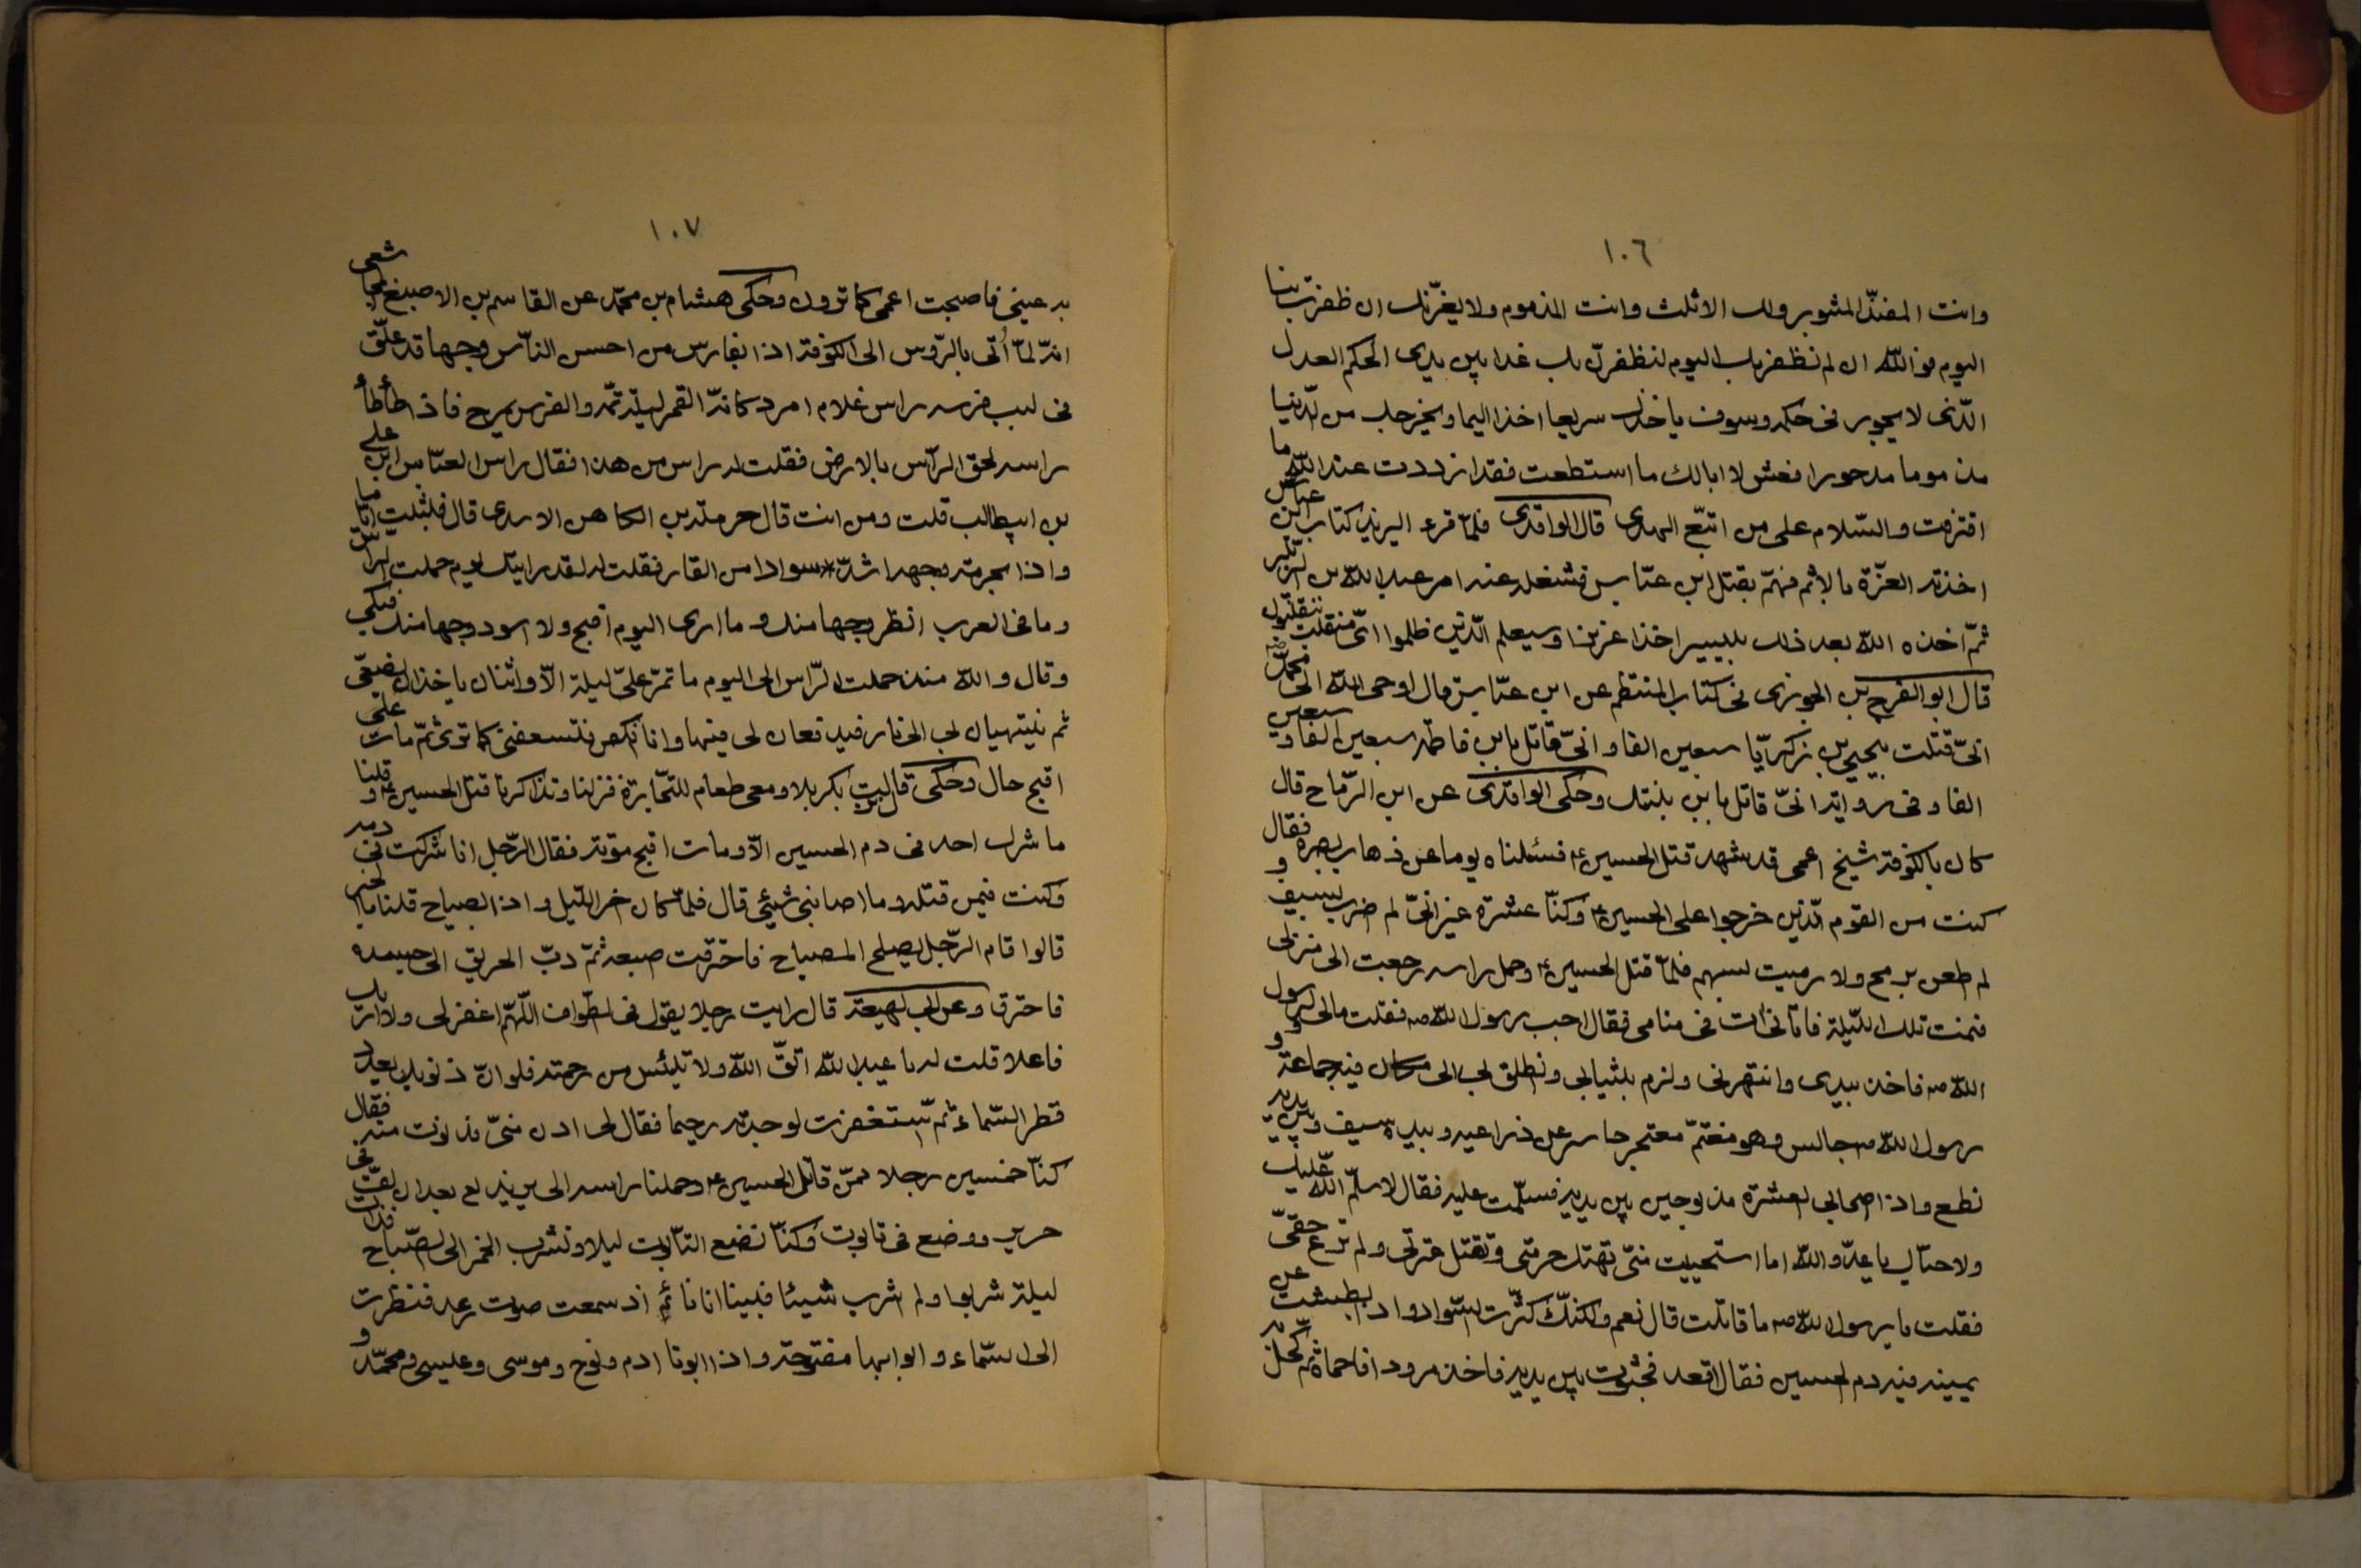 ١٠٦
وانت المفند المثبور ولك الاثلث وانت المذموم ولا يغرّنك ان ظفرت بنا
اليوم فوالله ان لم نظفر بك اليوم لنظفرنّ بك غدا بين يدى الحكم العدل
الّذى لا يجور فى حكمه وسوف ياخذك سريعا اخذا اليما ويخرجك من الدّنيا
مذموما مدحورا فعش لا ابالك ما استطعت فقد ازددت عند الله ما
اقترفت والسّلام على من اتبّع الهدى قال الواقدى فلمّا قرء اليزيد كتاب ابن عباس
اخذته العزّة بالاثم فهمّ بقتل ابن عبّاس فشغله عنه امر عبدالله بن الزبير
ثمّ اخذه الله بعد ذلك بيسير اخذا عزيزا وسيعلم الّذين ظلموا اىّ منقلب ينقلبون
قال ابو الفرج بن الجوزى فى كتاب المنتظم عن ابن عبّاس قال اوحى الله الى محمّد ص
انّى قتلت بيحيى بن زكريّا سبعين الفا وانّى قاتل بابن فاطمه سبعين الفا وسبعين
الفا وفى روايه انّى قاتل بابن بنتك وحكى الواقدى عن ابن الرّماح قال
كان بالكوفة شيخ اعمى قد شهد قتل الحسين ع فسئلناه يوما عن ذهاب بصره فقال
كنت من القوم الّذين خرجوا على الحسين ع وكنّا عشرة غير انّى لم اضرب بسيف و
لم اطعن برمح ولا رميت بسهم فلمّا قتل الحسين ع وحمل راسه رجعت الى منزلى
فنمت تلك اللّيلة فاتانى ات فى منامى فقال اجب رسول الله ص فقلت مالى ولرسول
الله ص فاخذ بيدى وانتهرنى ولزم بلثيابى وانطلق بى الى مكان فيه جماعة و
رسول الله ص جالس وهو مغتمّ معتجر حاسر عن ذراعيه وبيده سيف وبين يديه
نطع واذا اصحابى العشرة مذبوحين بين يديه فسلّمت عليه فقال لا سلّم الله عليك
ولا حيّاك يا عدّو الله اما استحييت منّى تهتك حرمتى وتقتل عترتى ولم ترع حقّى
فقلت يا رسول الله ص ما قاتلت قال نعم ولكنّك كثّرت السّواد واذا بطشت عن
يمينه فيه دم الحسين فقال اقعد فجثوت بين يديه فاخذ مرودا فاحماه ثم كحل
١٠٧
به عينى فاصبحت اعمى كما ترون وحكى هشام بن محمّد عن القاسم بن الاصبغ المجاشعى
انّه لمّا اُتى بالرّوس الى الكوفة اذا بفارس من احسن النّاس وجها قد علّق
فى لبب فرسه راس غلام امرد كانّه القمر ليلة تمّه والفرس يمرح فاذا طأطأ
راسه لحق الرّأس بالارض فقلت له راس من هذا فقال راس العبّاس ابن على
بن ابيطالب قلت ومن انت قال حرملة بن الكاهن الاسدى قال فلبثت ايّاما
واذا بحرمله وجهه اشدّ سوادا من القار فقلت له لقد رايتك يوم حملت الراس
وما فى العرب انظر وجها منك وما ارى اليوم اقبح ولا اسود وجها منك فبكى
وقال والله منذ حملت الرّاس الى اليوم ما تمرّ علىّ ليلة الاّ واثنان ياخذان بضبعىّ
ثم ينتهيان بى الى نار فيدفعان لى فيها وانا انكص فتسعفنى كما ترى ثمّ مات على
اقبح حال وحكى قال بت بكربلا ومعى طعام للتّجارة فنزلنا وتذاكرنا قتل الحسين ع وقلنا
ما شرك احد فى دم الحسين الاّ ومات اقبح موته فقال الرّجل انا شركت فى دمه
وكنت فيمن قتله وما اصابنى شيئى قال فلمّا كان اخر اللّيل واذا بصياح قلنا ما الخبر
قالوا قام الرّجل يصلح المصباح فاحترقت اصبعه ثمّ دبّ الحريق الى جسده
فاحترق وعن ابى لهيعة قال رايت رجلا يقول فى الطّواف اللّهمّ اغفر لى ولا اراك
فاعلا قلت له يا عبدالله اتّق الله ولا تيئس من رحمته فلو انّ ذنوبك بعدد
قطر السّماء ثم تستغفرت لوجدته رحيما فقال لى ادن منّى فدنوت منه فقال
كنّا خمسين رجلا ممّن قاتل الحسين ع وحملنا راسه الى يزيد لع بعد ان لفّ فى
حرير ووضع فى تابوت وكنّا نضع التّابوت ليلا ونشرب الخمر الى الصّباح فذات
ليلة شربوا ولم اشرب شيئا فبينا انا نائم اذ سمعت صوت رعد فنظرت
الى السّماء و ابوابها مفتوحة واذا ابونا ادم ونوح وموسى وعيسى ومحمّد و